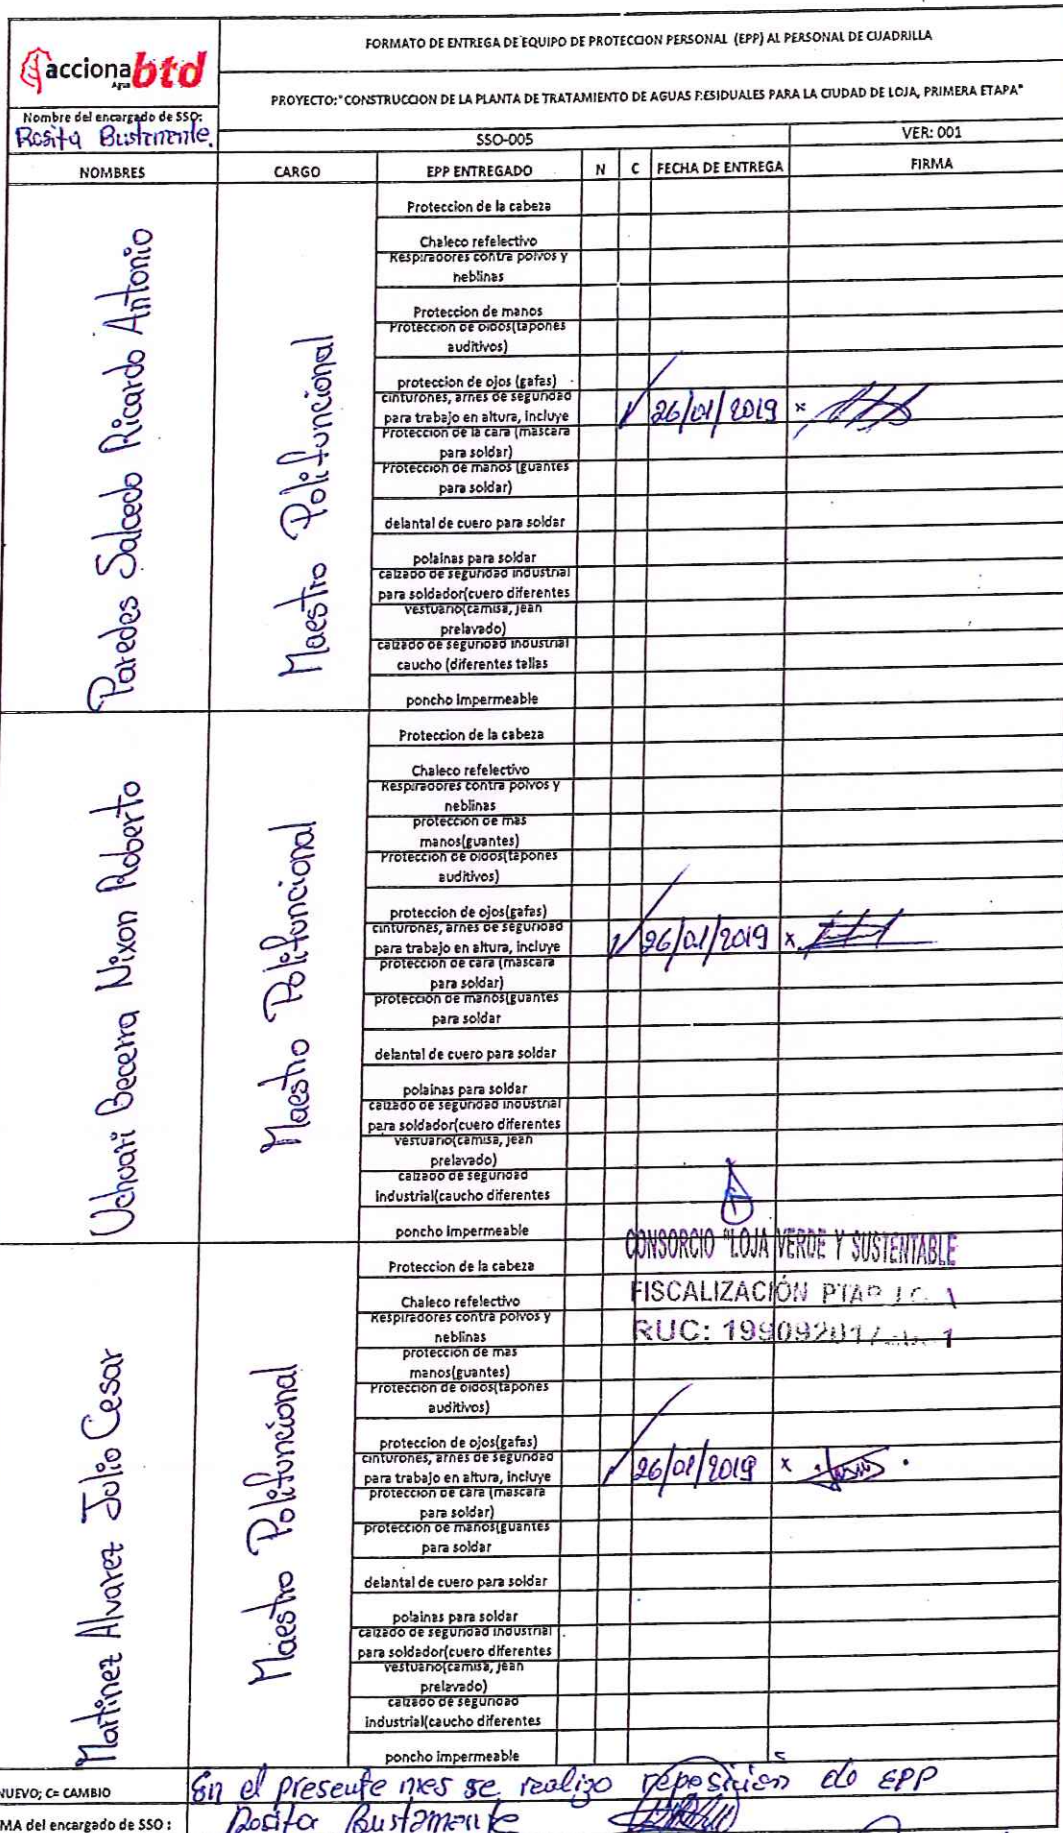 FORMATO DE ENTREGA DE EQUIPO DE PROTECCION PERSONAL (EPP) AL PERSONAL DE CUADRILLA
acciona btd
Agua
PROYECTO:"CONSTRUCCION DE LA PLANTA DE TRATAMIENTO DE AGUAS RESIDUALES PARA LA CIUDAD DE LOJA, PRIMERA ETAPA"
Nombre del encargado de SSO:
Rosita Bustamante.
SSO-005 VER: 001
NOMBRES CARGO EPP ENTREGADO N C FECHA DE ENTREGA FIRMA
Paredes Salcedo Ricardo Antonio
Maestro Polifuncional
Proteccion de la cabeza
Chaleco refelectivo
Respiradores contra polvos y
neblinas
Proteccion de manos
Proteccion de oidos(tapones
auditivos)
proteccion de ojos (gafas)
cinturones, arnes de seguridad
para trabajo en altura, incluye
26/01/2019 x
Proteccion de la cara (mascara
para soldar)
Proteccion de manos (guantes
para soldar)
delantal de cuero para soldar
polainas para soldar
calzado de seguridad industrial
para soldador(cuero diferentes
vestuario(camisa, jean
prelavado)
calzado de seguridad industrial
caucho (diferentes tallas
poncho impermeable
Uchuari Becerra Nixon Roberto
Maestro Polifuncional
Proteccion de la cabeza
Chaleco refelectivo
Respiradores contra polvos y
neblinas
proteccion de mas
manos(guantes)
Proteccion de oidos(tapones
auditivos)
proteccion de ojos(gafas)
cinturones, arnes de seguridad
para trabajo en altura, incluye
26/01/2019 x
proteccion de cara (mascara
para soldar)
proteccion de manos(guantes
para soldar
delantal de cuero para soldar
polainas para soldar
calzado de seguridad industrial
para soldador(cuero diferentes
vestuario(camisa, jean
prelavado)
calzado de seguridad
industrial(caucho diferentes
poncho impermeable
CONSORCIO "LOJA VERDE Y SUSTENTABLE
FISCALIZACIÓN PTAR
RUC:
Martinez Alvarez Julio Cesar
Maestro Polifuncional
Proteccion de la cabeza
Chaleco refelectivo
Respiradores contra polvos y
neblinas
proteccion de mas
manos(guantes)
Proteccion de oidos(tapones
auditivos)
proteccion de ojos(gafas)
cinturones, arnes de seguridad
para trabajo en altura, incluye
26/01/2019 x
proteccion de cara (mascara
para soldar)
proteccion de manos(guantes
para soldar
delantal de cuero para soldar
polainas para soldar
calzado de seguridad industrial
para soldador(cuero diferentes
vestuario(camisa, jean
prelavado)
calzado de seguridad
industrial(caucho diferentes
poncho impermeable
NUEVO; C= CAMBIO En el presente mes se realizo reposicion de EPP
MA del encargado de SSO : Rosita Bustamante